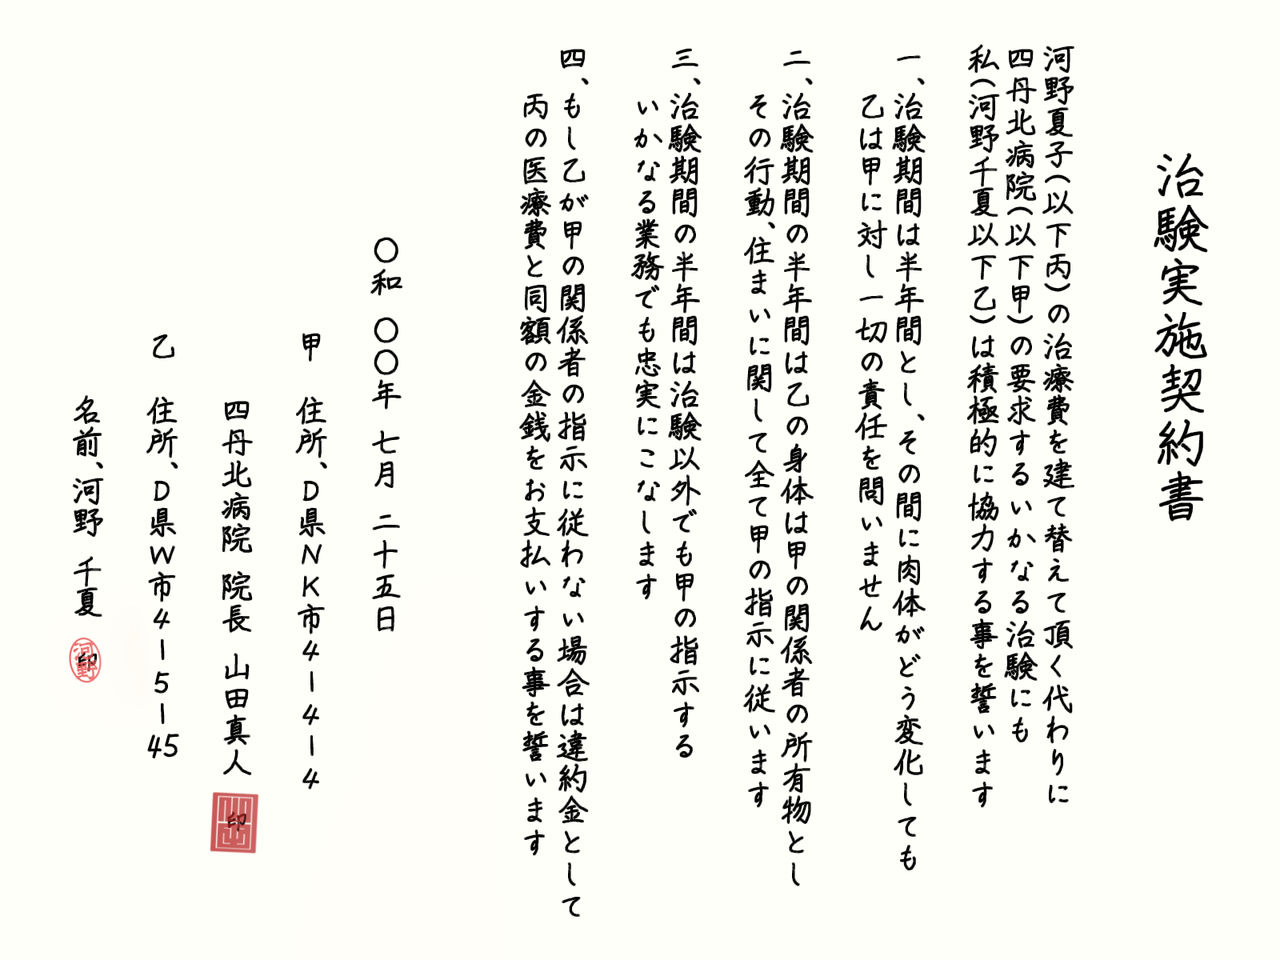 治験実施契約書
河野夏子(以下丙)の治療費を建て替えて頂く代わりに
四丹北病院(以下甲)の要求するいかなる治験にも
私(河野千夏以下乙)は積極的に協力する事を誓います
一、治験期間は半年間とし、その間に肉体がどう変化しても
乙は甲に対し一切の責任を問いません
二、治験期間の半年間は乙の身体は甲の関係者の所有物とし
その行動、住まいに関して全て甲の指示に従います
三、治験期間の半年間は治験以外でも甲の指示する
いかなる業務でも忠実にこなします
四、もし乙が甲の関係者の指示に従わない場合は違約金として
丙の医療費と同額の金銭をお支払いする事を誓います
〇和 〇〇年 七月 二十五日
甲 住所、D県NK市4-4-4
四丹北病院 院長 山田真人 印
乙 住所、D県W市4-5-45
名前、河野 千夏 印
河野